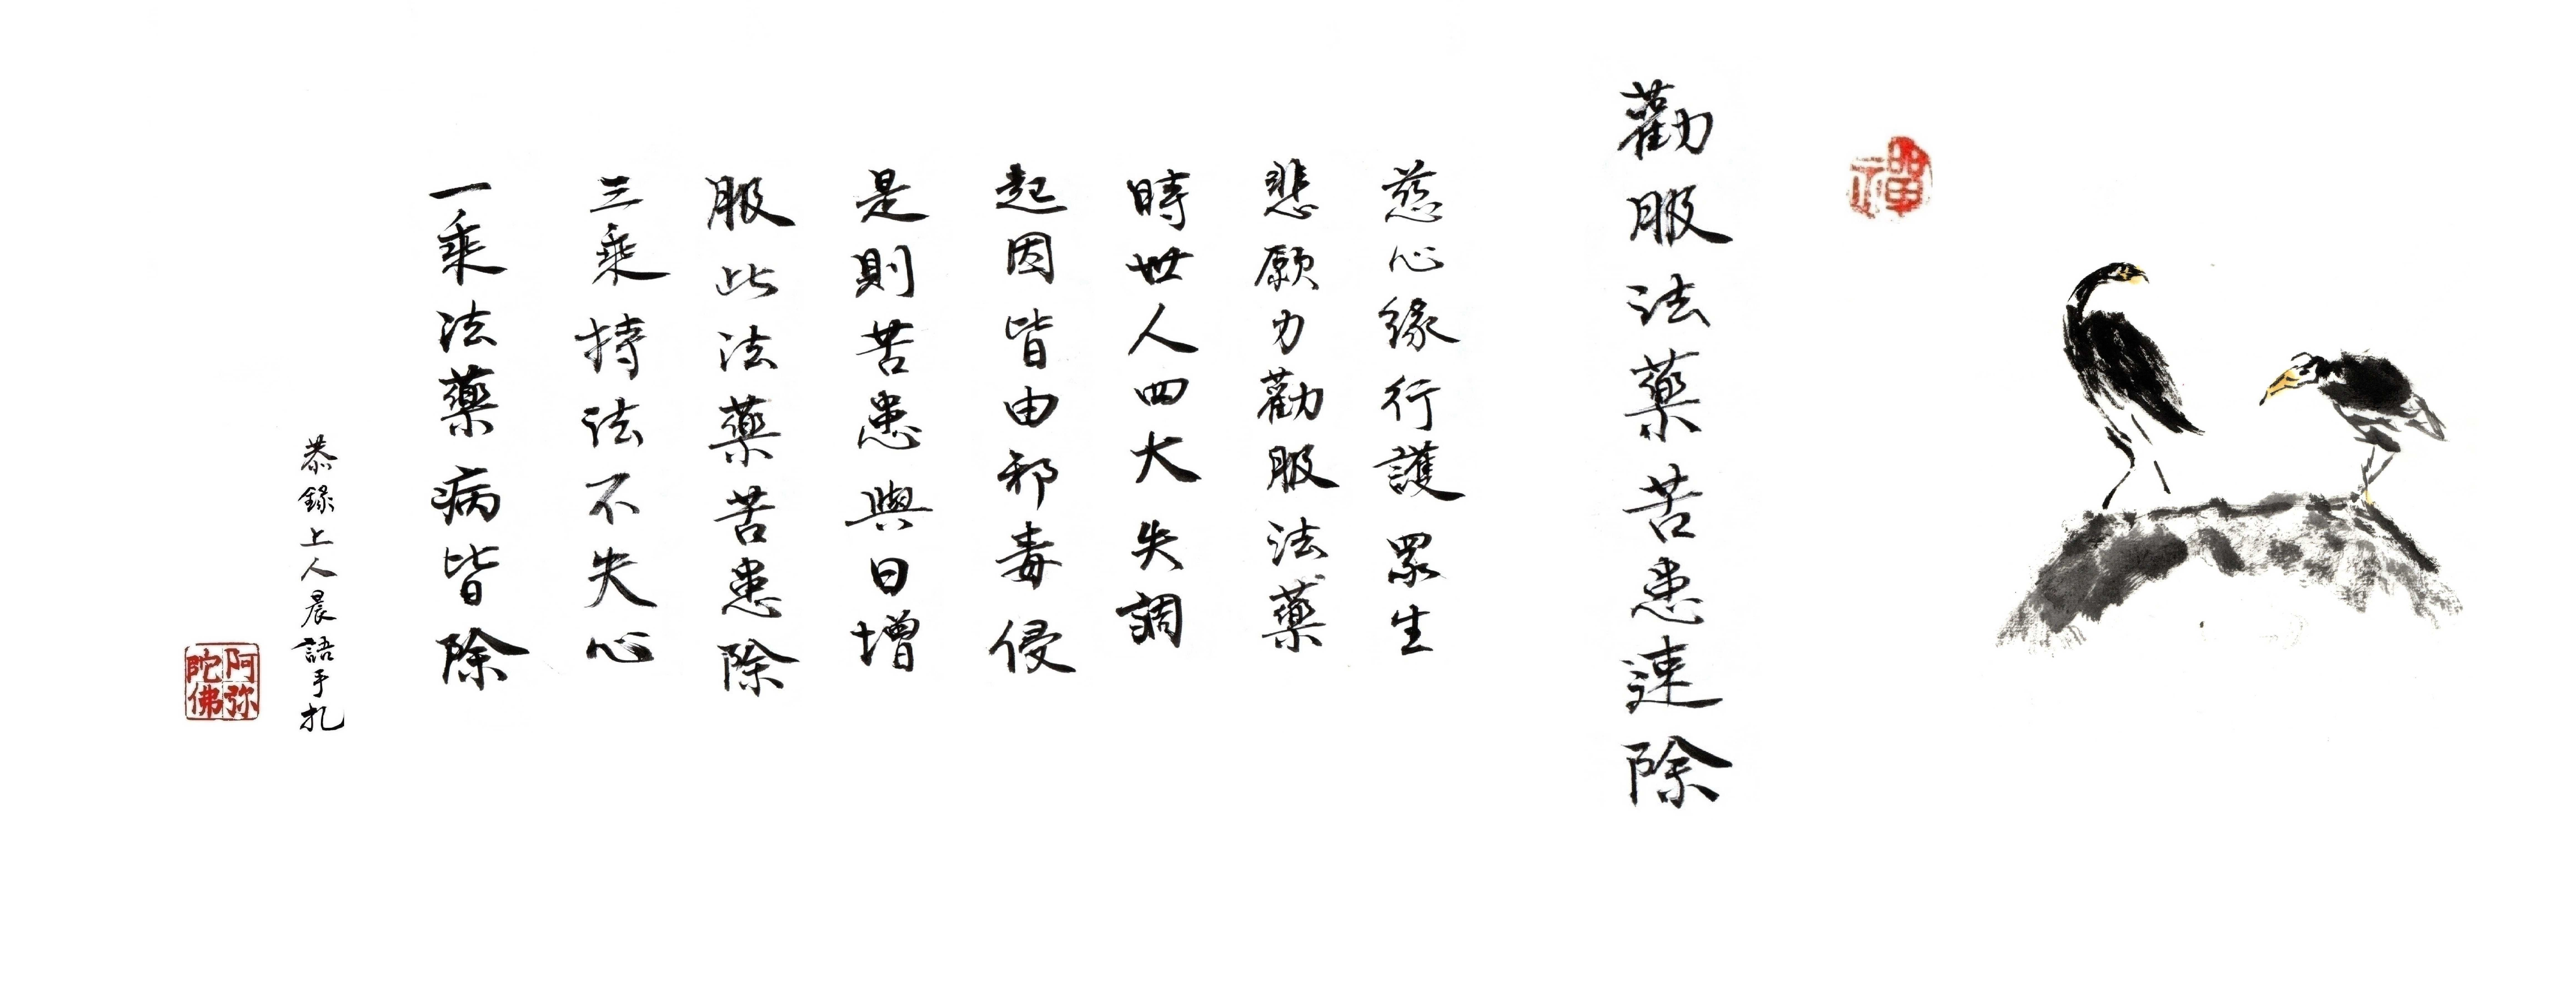 禪
勸服法藥苦患速除
慈心緣行護眾生
悲願力勸服法藥
時世人四大失調
起因皆由邪毒侵
是則苦患與日增
服此法藥苦患除
三乘持法不失心
一乘法藥病皆除
恭錄上人晨語手札
阿弥陀佛